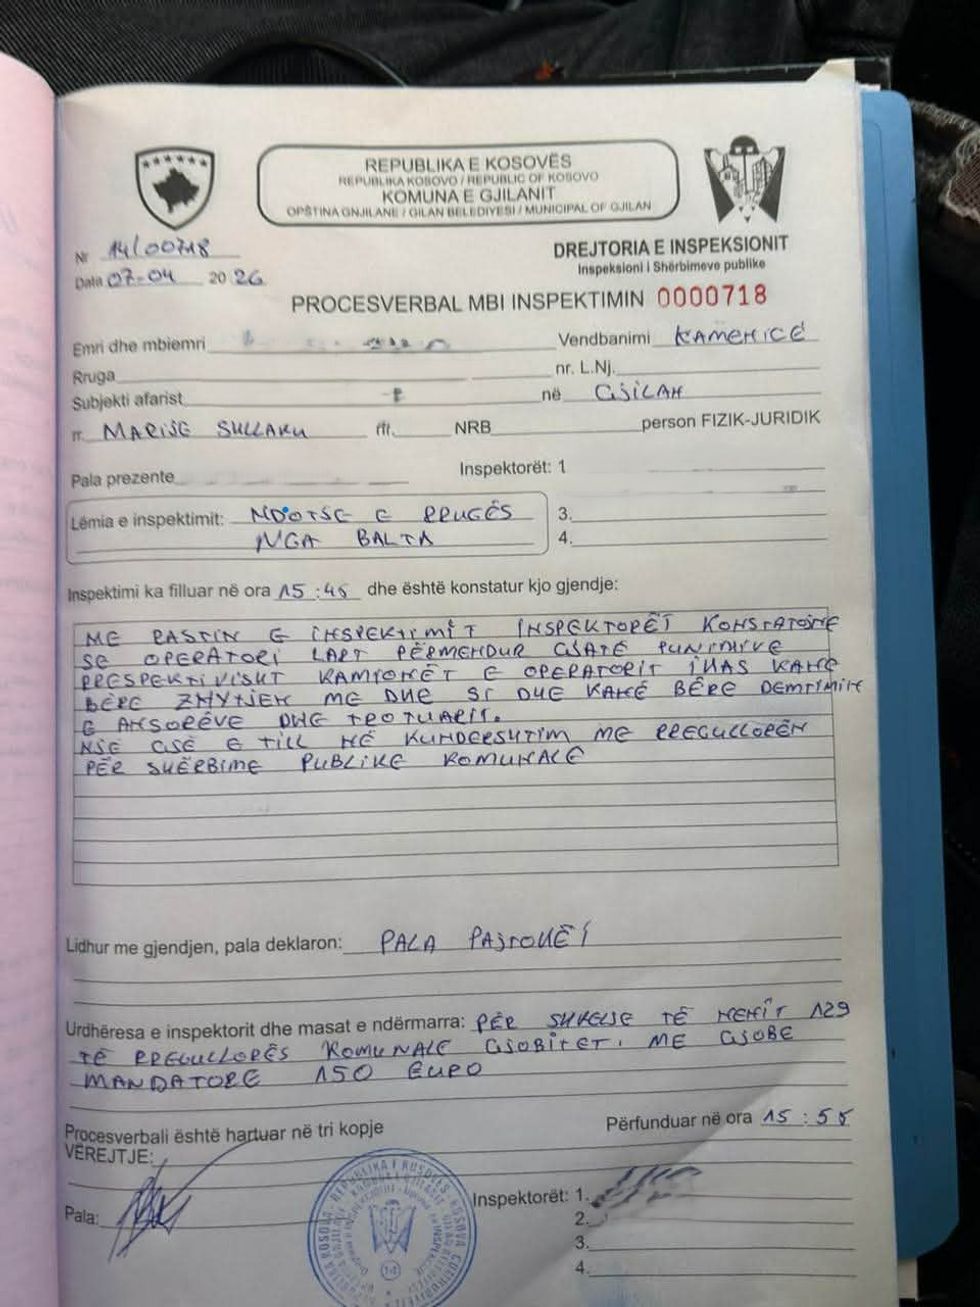 REPUBLIKA E KOSOVËS
REPUBLIKA KOSOVO / REPUBLIC OF KOSOVO
KOMUNA E GJILANIT
OPŠTINA GNJILANE / GILAN BELEDIYESI / MUNICIPAL OF GJILAN
Nr 14/00718
Data 07-04 2026
DREJTORIA E INSPEKSIONIT
Inspeksioni i Shërbimeve publike
PROCESVERBAL MBI INSPEKTIMIN 0000718
Emri dhe mbiemri Vendbanimi KAMENICË
Rruga nr. L.Nj.
Subjekti afarist në GJILAN
rr. MARIJE SHLLAKU nr. NRB person FIZIK-JURIDIK
Pala prezente Inspektorët: 1
Lëmia e inspektimit: NDOTJE E RRUGËS 3.
NGA BALTA 4.
Inspektimi ka filluar në ora 15:45 dhe është konstatur kjo gjendje:
ME RASTIN E INSPEKTIMIT INSPEKTORËT KONSTATOJNË
SE OPERATORI LART PËRMENDUR GJATË PUNIMVE
PRESPEKTIVISHT KAMIONËT E OPERATORIT KANË
BËRE ZHYTJEN ME DHE SI DHE KANË BËRE DEMTIMIN
E ANSORËVE DHE TROTUARIT.
NJË GJË E TILL NË KUNDERSHTIM ME RREGULLOREN
PËR SHËRBIME PUBLIKE KOMUNALE
Lidhur me gjendjen, pala deklaron: PALA PAJTOHËT
Urdhëresa e inspektorit dhe masat e ndërmarra: PËR SHKELJE TË NENIT 129
TË RREGULLORËS KOMUNALE GJOBITET. ME GJOBE
MANDATORE 150 EURO
Procesverbali është hartuar në tri kopje Përfunduar në ora 15:55
VËREJTJE:
Pala: Inspektorët: 1.
2.
3.
4.